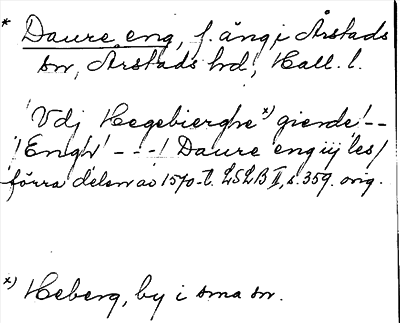 * Daure eng, f. äng i Årstads
sn, Årstads hd, Hall. l.
'Vdj Hegebierghe x) giende' --
'/Engh' ---/ Daure eng iij les/
förra delen av 1570-t. LSLB II, s. 359. orig.
x) Heberg, by i sma sn.